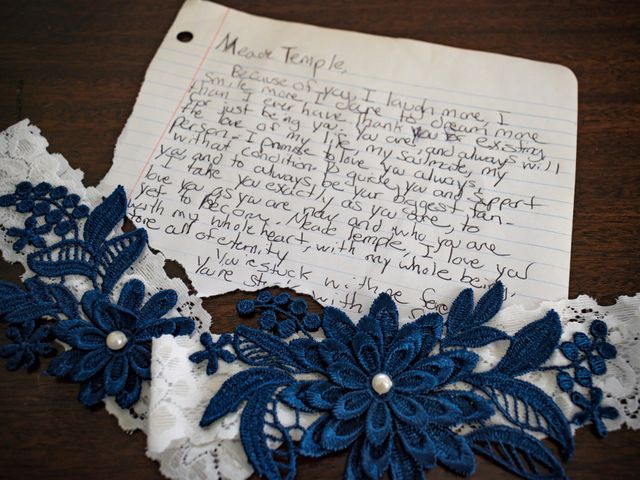 Meade Temple,
Because of you, I laugh more, I
smile more, I dare to dream more
than I ever have. Thank you existing,
for just being you. You are, and always will
the love of my life, my soulmate, my
person. I promise to love you always,
without condition. To guide you and support
you and to always be your biggest fan.
I take you exactly as you are, to
love you as you are now and who you are
yet to become. Meade Temple, I love you
with my whole heart, with my whole being,
for all of eternity
You're stuck with me
You're with